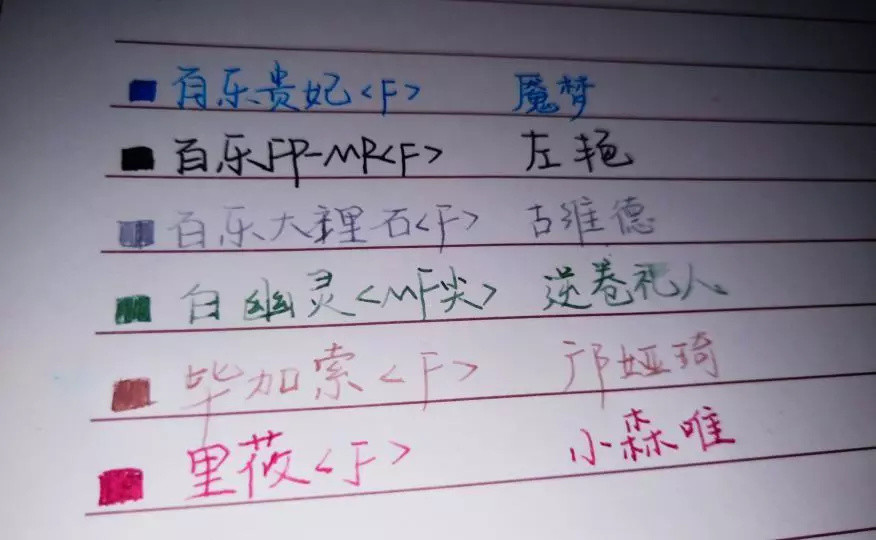 百乐贵妃<F> 魇梦
百乐FP-MR<F> 左艳
百乐大理石<F> 古维德
白幽灵<MF尖> 逆卷礼人
毕加索<F> 邝娅琦
里莜<F> 小森唯